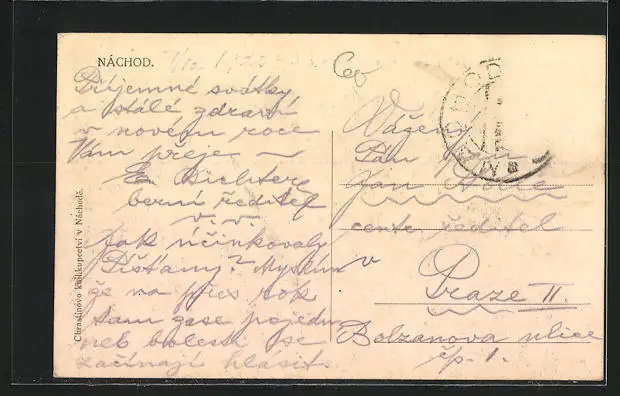 NÁCHOD.
Příjemné svátky
a stálé zdraví
v novém roce
Vám přeje
E. Richter
berní ředitel
v. v.
Jak účinkovaly
Píšťany? Myslím
že na přes rok
tam zase pojedu
neb bolesti se
začínají hlásit.
Chrastinovo knihkupectví v Náchodě.
Vážený
Pán
Jan
ředitel
v
Praze II.
Bolzanova ulice
čp. 1.